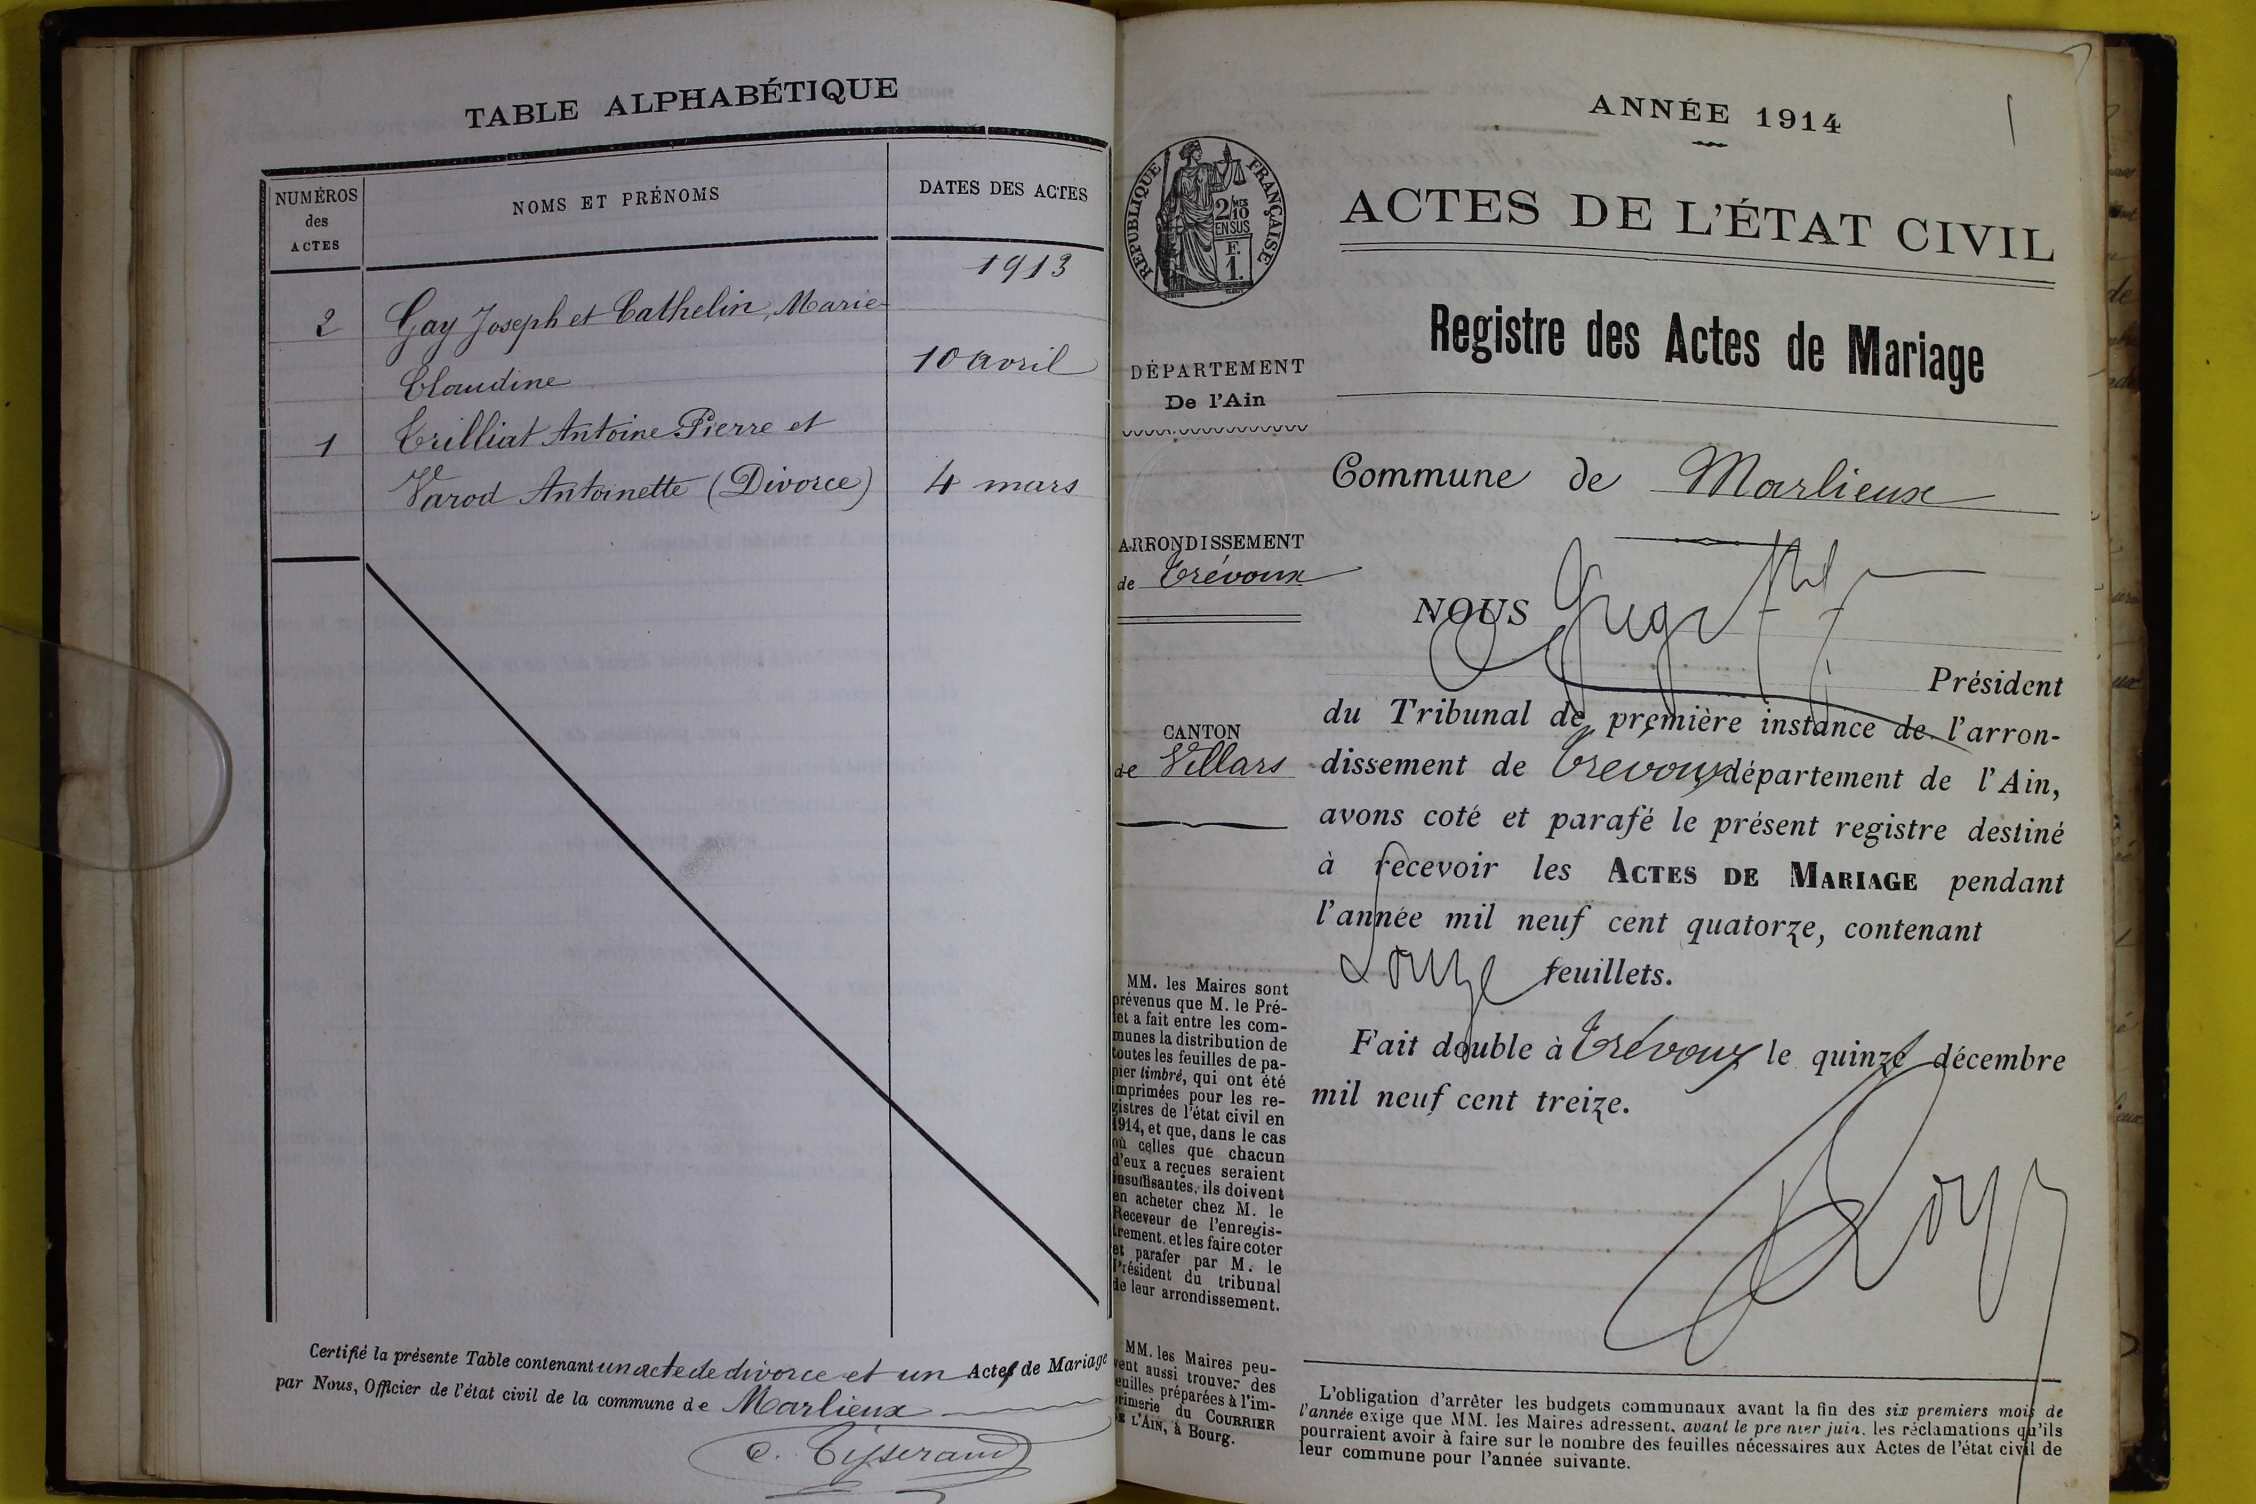 TABLE ALPHABÉTIQUE
NUMÉROS
des
ACTES
NOMS ET PRÉNOMS
DATES DES ACTES
1913
2 Gay Joseph et Cathelin, Marie
Claudine 10 avril
1 Trilliat Antoine Pierre et
Varod Antoinette (Divorce) 4 mars
Certifié la présente Table contenant un acte de divorce et un Actes de Mariage
par Nous, Officier de l'état civil de la commune de Marlieux
C. Tisserand
1
ANNÉE 1914
RÉPUBLIQUE FRANÇAISE
2/10
EN SUS
F.
1.
ACTES DE L'ÉTAT CIVIL
Registre des Actes de Mariage
DÉPARTEMENT
De l'Ain
Commune de Marlieux
ARRONDISSEMENT
de Trévoux
NOUS
Président
du Tribunal de première instance de l'arron-
dissement de Trévoux département de l'Ain,
avons coté et parafé le présent registre destiné
à recevoir les ACTES DE MARIAGE pendant
l'année mil neuf cent quatorze, contenant
feuillets.
Fait double à Trévoux le quinze décembre
mil neuf cent treize.
CANTON
de Villars
MM. les Maires sont
prévenus que M. le Pré-
fet a fait entre les com-
munes la distribution de
toutes les feuilles de pa-
pier timbré, qui ont été
imprimées pour les re-
gistres de l'état civil en
1914, et que, dans le cas
où celles que chacun
d'eux a reçues seraient
insuffisantes, ils doivent
en acheter chez M. le
Receveur de l'enregis-
trement, et les faire coter
et parafer par M. le
Président du tribunal
de leur arrondissement.
MM. les Maires peu-
vent aussi trouver des
feuilles préparées à l'im-
primerie du COURRIER
DE L'AIN, à Bourg.
L'obligation d'arrêter les budgets communaux avant la fin des six premiers mois de
l'année exige que MM. les Maires adressent, avant le premier juin, les réclamations qu'ils
pourraient avoir à faire sur le nombre des feuilles nécessaires aux Actes de l'état civil de
leur commune pour l'année suivante.